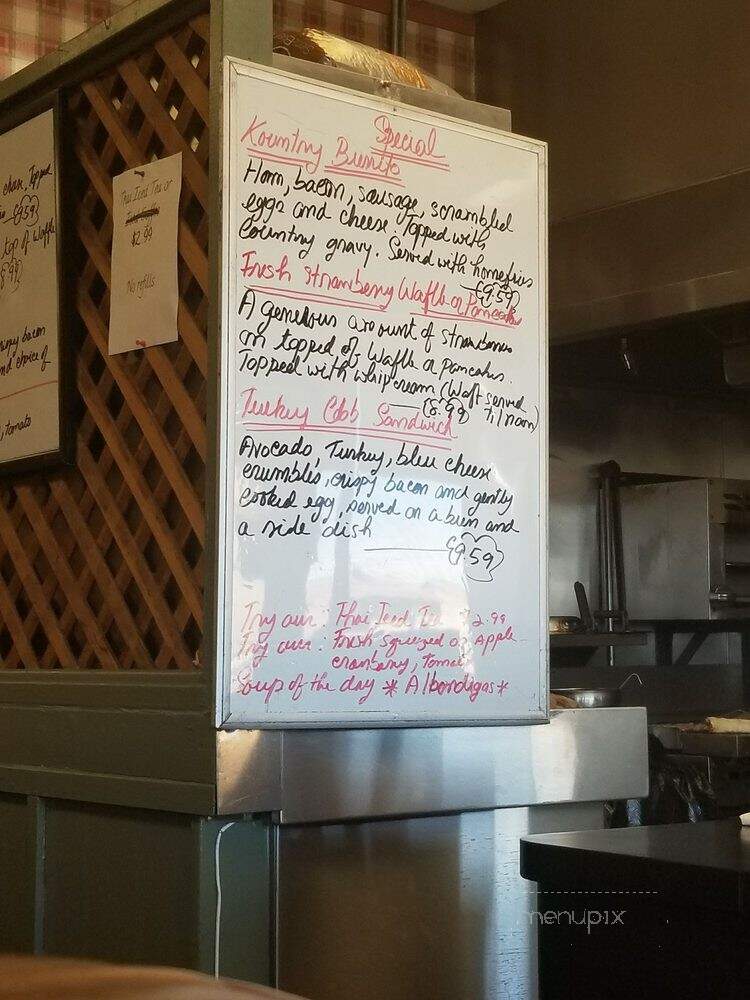 Special
Kountry Burrito
Ham, bacon, sausage, scrambled
eggs and cheese. Topped with
Country gravy. Served with homefries
9.59
Fresh Strawberry Waffle or Pancakes
A generous amount of strawberries
on topped of Waffle or pancakes.
Topped with whip cream (Waff served
8.99 til noon)
Turkey Cobb Sandwich
Avocado, Turkey, bleu cheese
crumbles, crispy bacon and gently
cooked egg, served on a bun and
a side dish
9.59
Try our: Thai Iced Tea $2.99
Try our: Fresh squeezed Apple
cranberry, tomato
Soup of the day * Albondigas *
Thai Iced Tea or
$2.99
No refills
cheese, Topped
9.59
top of Waffle
8.99
crispy bacon
and choice of
, tomato
menupix